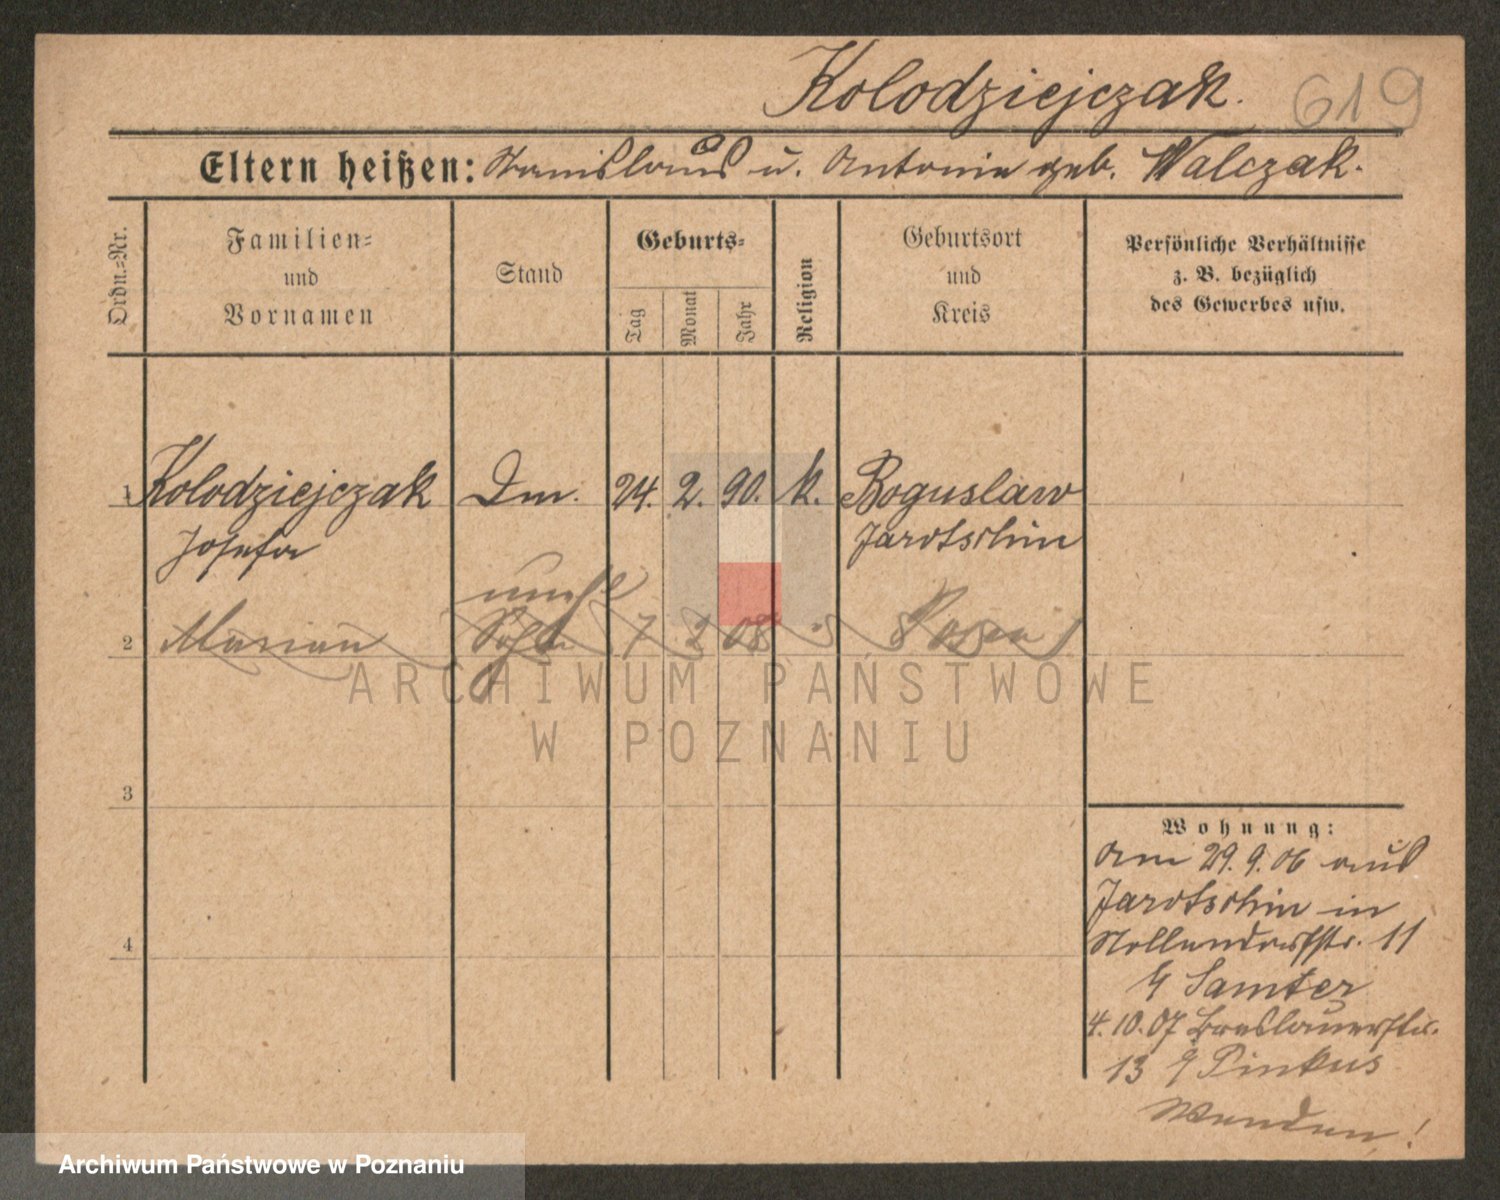 Kolodziejczak. 619
Eltern heißen: Stanislaus u. Antonie geb. Walczak.
Ordn.=Nr.
Familien=
und
Vornamen
Stand
Geburts=
Tag
Monat
Jahr
Religion
Geburtsort
und
Kreis
Persönliche Verhältnisse
z. B. bezüglich
des Gewerbes usw.
1 Kolodziejczak Dm. 24. 2. 90. k. Boguslaw
Josefa Jarotschin
unehel
2 Marian Sohn 7 2 08 Posen
3
4
Wohnung:
Am 29.9.06 aus
Jarotschin in
Nollendorfstr. 11
Samter
4.10.07 Breslauerstr.
13 Pinkus
Wenden!
ARCHIWUM PAŃSTWOWE
W POZNANIU
Archiwum Państwowe w Poznaniu